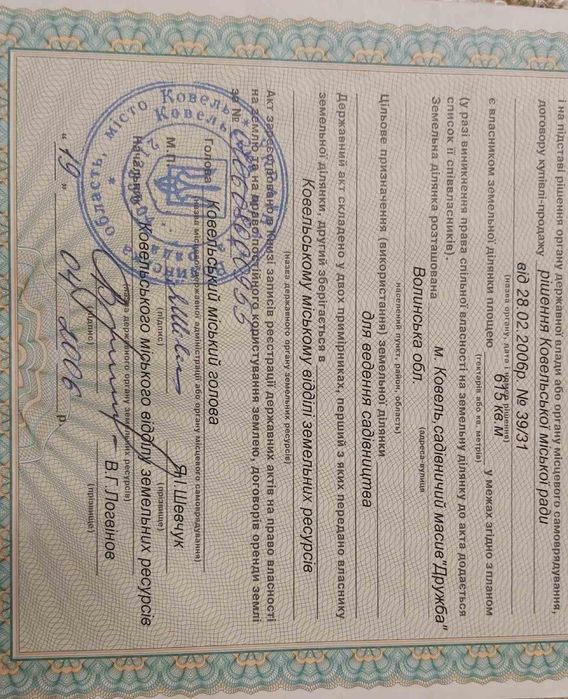 і на підставі рішення органу державної влади або органу місцевого самоврядування,
договору купівлі-продажу рішення Ковельської міської ради
від 28.02.2006р. № 39/31
(назва органу, дата і номер рішення)
є власником земельної ділянки площею 615 кв.м у межах згідно з планом
(гектарів або кв. метрів)
(у разі виникнення права спільної власності на земельну ділянку до акта додається
список її співвласників).
Земельна ділянка розташована м. Ковель садівничий масив"Дружба"
(адреса-вулиця
Волинська обл.
населений пункт, район, область)
Цільове призначення (використання) земельної ділянки
для ведення садівництва
Державний акт складено у двох примірниках, перший з яких передано власнику
земельної ділянки, другий зберігається в
Ковельському міському відділі земельних ресурсів
(назва державного органу земельних ресурсів)
Акт зареєстровано в Книзі записів реєстрації державних актів на право власності
на землю та на право постійного користування землею, договорів оренди землі
за №
Ковельський міський голова
(назва місцевої державної адміністрації або органу місцевого самоврядування)
Голова Я І Шевчук
М.П. (підпис) (прізвище)
Начальник Ковельського міського відділу земельних ресурсів
(назва державного органу земельних ресурсів)
В.Г.Логвінов
(підпис) (прізвище)
" 19 " 04 2006 р.
область, місто Ковель